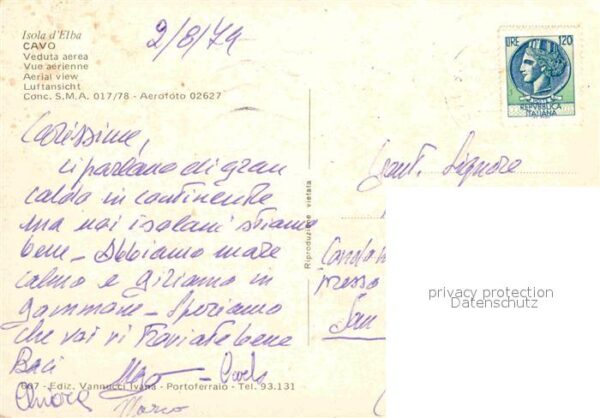 Isola d'Elba
CAVO
Veduta aerea
Vue aérienne
Aerial view
Luftansicht
Conc. S.M.A. 017/78 - Aerofoto 02627
2/8/79
LIRE 120
REPVBBLICA
ITALIANA
Carissime,
ci parlano di gran
caldo in continente
ma noi isolani stiamo
bene - Abbiamo mare
calmo e giriamo in
gommone - Speriamo
che voi vi troviate bene
Baci
Carlo
Marco
607 - Ediz. Vannucci Ivana - Portoferraio - Tel. 93.131
Riproduzione vietata
Gent. Signore
presso
San
privacy protection
Datenschutz